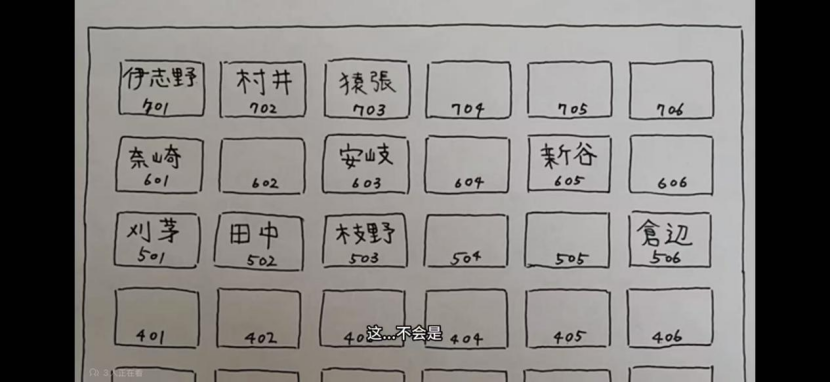 伊志野 701
村井 702
猿張 703
704
705
706
奈崎 601
602
安岐 603
604
新谷 605
606
刈茅 501
田中 502
枝野 503
504
505
倉辺 506
401
402
404
405
406
这...不会是